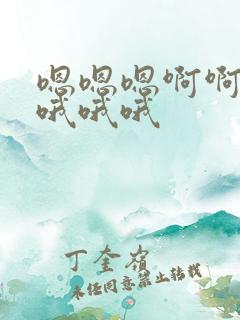 嗯嗯嗯啊啊
哦哦哦
丁奎嶺
未经同意禁止转载